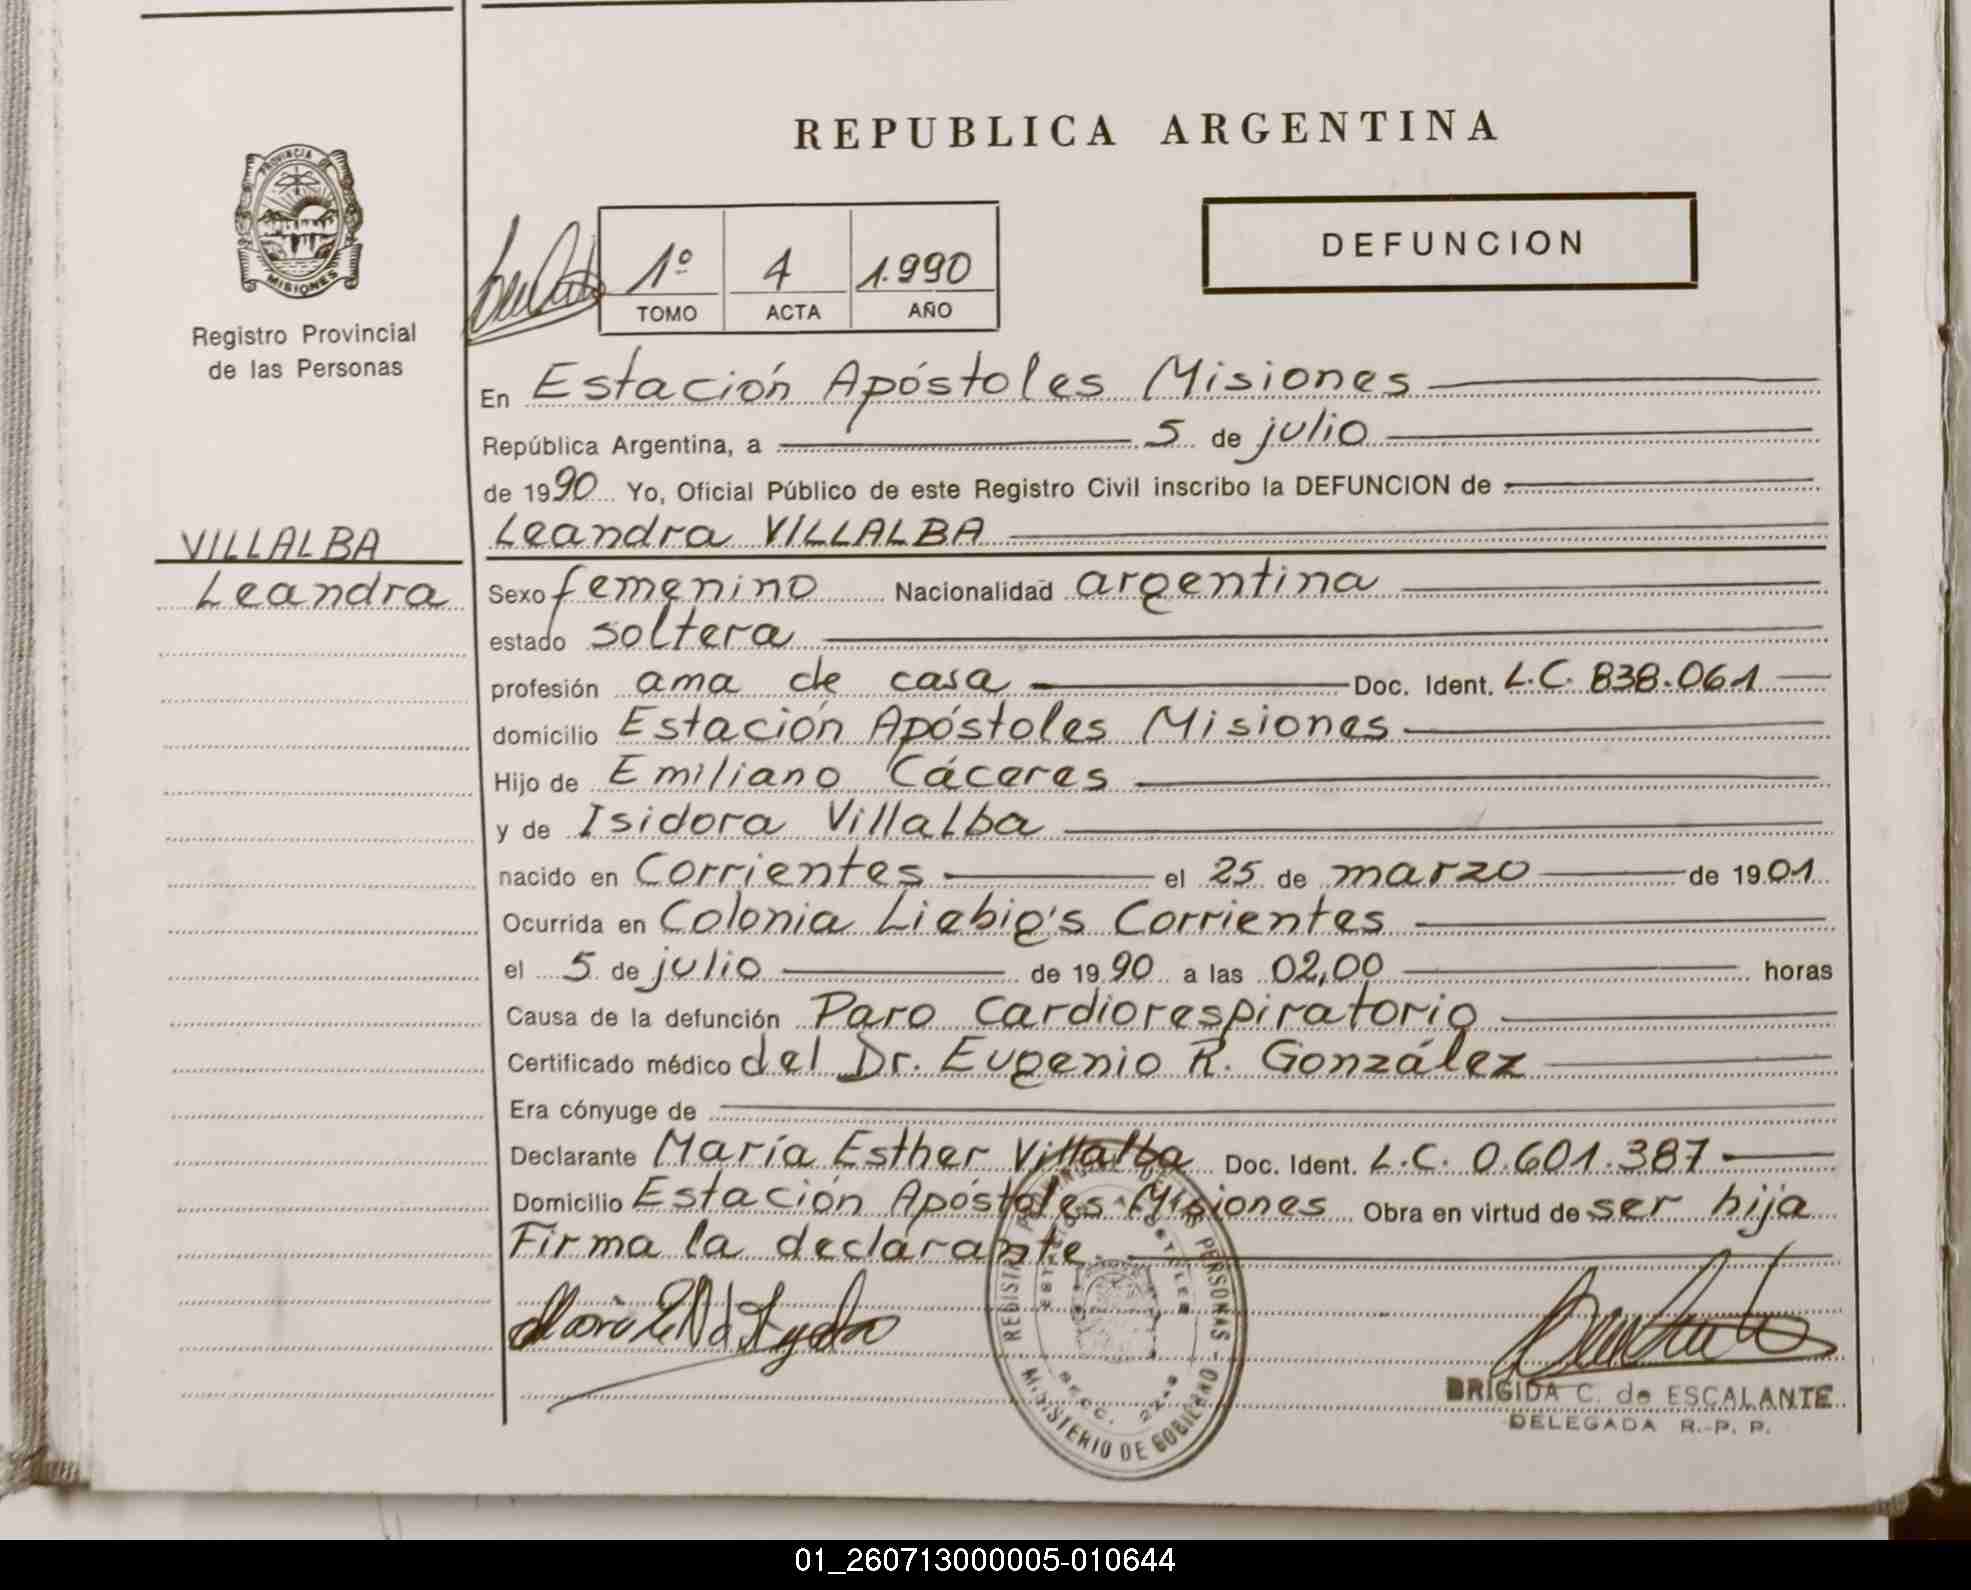 REPUBLICA ARGENTINA
PROVINCIA DE MISIONES
Registro Provincial
de las Personas
1º 4 1.990
TOMO ACTA AÑO
DEFUNCION
En Estación Apóstoles Misiones
República Argentina, a 5 de julio
de 1990 Yo, Oficial Público de este Registro Civil inscribo la DEFUNCION de
Leandra VILLALBA
VILLALBA
Leandra
Sexo femenino Nacionalidad argentina
estado soltera
profesión ama de casa Doc. Ident. L.C. 838.061
domicilio Estación Apóstoles Misiones
Hijo de Emiliano Cáceres
y de Isidora Villalba
nacido en Corrientes el 25 de marzo de 1901
Ocurrida en Colonia Liebig's Corrientes
el 5 de julio de 1990 a las 02,00 horas
Causa de la defunción Paro Cardiorespiratorio
Certificado médico del Dr. Eugenio R. González
Era cónyuge de
Declarante María Esther Villalba Doc. Ident. L.C. 0.601.387
Domicilio Estación Apóstoles Misiones Obra en virtud de ser hija
Firma la declarante.
PERSONAS - MINISTERIO DE GOBIERNO
BRIGIDA C. de ESCALANTE
DELEGADA R.-P. P.
01_260713000005-010644